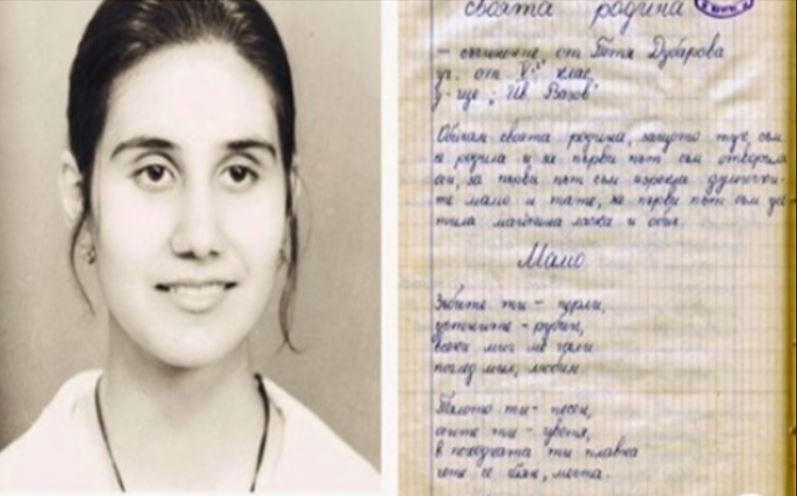 своята родина
– съчинение от Петя Дубарова
уч. от V клас
у-ще "Ив. Вазов"
Обичам своята родина, защото тук съм
се родила и за първи път съм отворила
очи, за първи път съм изрекла думички-
те мамо и тате, за първи път съм усе-
тила майчина ласка и обич.
Мамо
Зъбите ти – перли,
устните – рубин,
всеки миг ме гали
поглед мил, любим.
Тялото ти – песен,
очите ти – цветя,
в походката ти плавна
чете се блян, мечта.